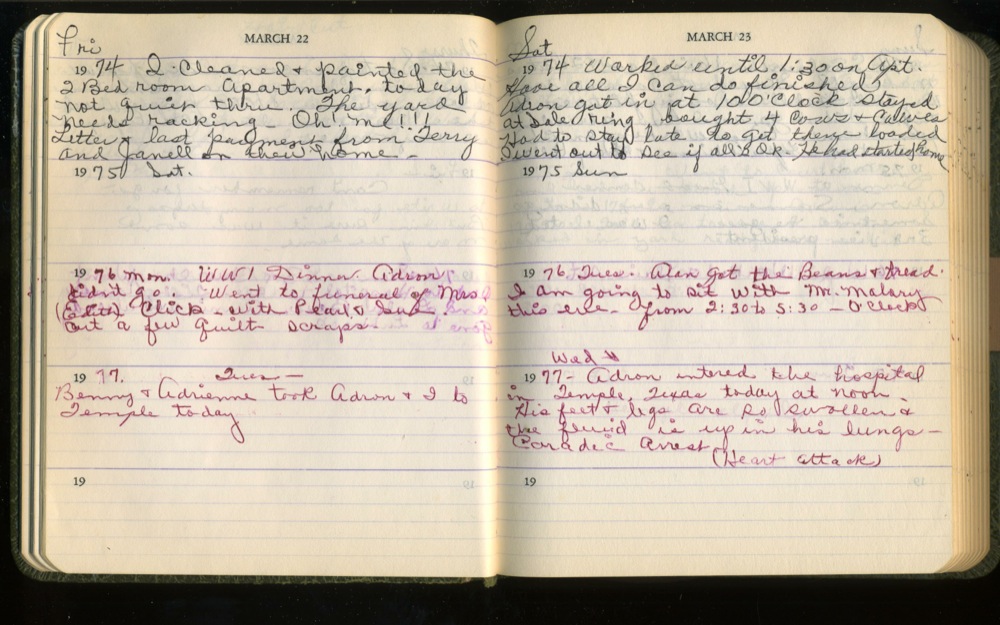 MARCH 22
Fri
1974 I Cleaned & painted the
2 Bed room Apartment. today
not quit thru. The yard
needs racking - Oh! me!!!
Letter & last payment from Terry
and Janell on their home -
1975 Sat.
1976 Mon. WW1 Dinner Adron
didn't go. Went to funeral of Mrs
Click - with Pearl &
cut a few quilt scraps
1977. Tues -
Benny & Adrienne took Adron & I to
Temple today
19
MARCH 23
Sat
1974 Worked until 1:30 on Apt.
Have all I can do finished
Adron got in at 10 O'Clock Stayed
at Sale ring bought 4 Cows & Calves
Had to stay late to get them loaded
I went out to see if all is OK. He had started home
1975 Sun
1976 Tues. Alan got the Beans & Bread.
I am going to sit with Mr. Malary
this eve - from 2:30 to 5:30 - O'clock
Wed
1977 - Adron intered the hospital
in Temple, Texas today at noon.
His feet & legs are so swollen &
the fluid is up in his lungs -
Caradic Arrest
(Heart attack)
19